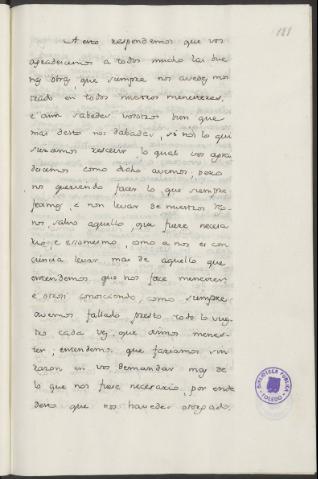 181
A esto respondemos que vos
agradecemos a todos mucho las bue
nas obras, que siempre nos avedes mos
trado en todos nuestros menesteres,
e aun sabedes vosotros bien que
mas desto nos dabades, si nos lo qui
sieramos rescevir lo qual vos agra
decemos como dicho avemos, pero
no queriendo facer lo que siempre
ficimos, e non levar de nuestros
nos, salvo aquello, que fuere necesa
rio, e eso mesmo, como a nos es con
ciencia levar mas de aquello que
entendemos que nos face menester;
e otrosi conosciendo, como siempre
ovemos fallado presto todo lo vues
tro cada vez que avimos menes-
ter, entendemos que fariamos sin
razon en vos demandar mas de
lo que nos fuese necesario, por ende
desto que nos havedes otorgado,
BIBLIOTECA PUBLICA
TOLEDO